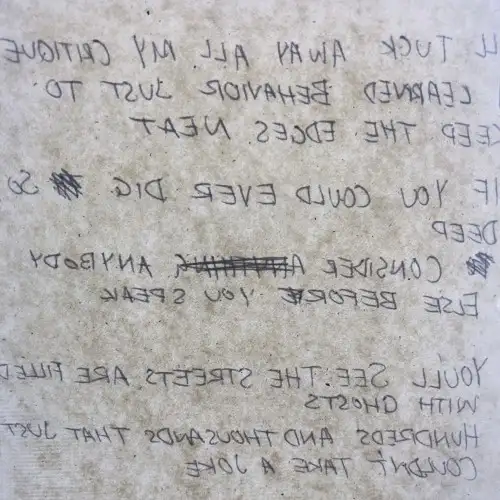 LL TUCK AWAY ALL MY CRITIQUE
LEARNED BEHAVIOR JUST TO
EEP THE EDGES NEAT
IF YOU COULD EVER DIG SO
DEEP
CONSIDER ANYBODY
ELSE BEFORE YOU SPEAK
YOULL SEE THE STREETS ARE FILLED
WITH GHOSTS
HUNDREDS AND THOUSANDS THAT JUST
COULDN'T TAKE A JOKE